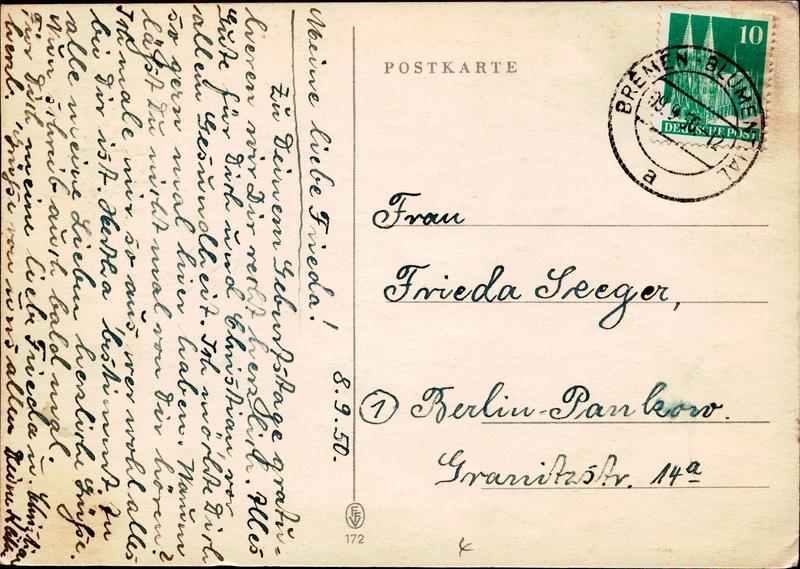 Meine liebe Frieda! 8.9.50.
Zu Deinem Geburtstage gratu-
lieren wir Dir recht herzlich. Alles
Gute für Dich und Christian, vor
allem Gesundheit. Ich möchte Dich
so gern mal hier haben. Warum
läßt Du nicht mal von Dir hören?
Ich male mir so aus, wer wohl alles
bei Dir ist. Hertha bestimmt. Zu
alle meine Lieben herzliche Grüße.
Nun schreib auch bald mal.
Für Dich meine liebe Frieda u.
herzl. Grüße von uns allen Deine
POSTKARTE
10
DEUTSCHE POST
BREMEN-BLUMENTHAL
a
Frau
Frieda Seeger,
1 Berlin-Pankow.
Granitzstr. 14a
172